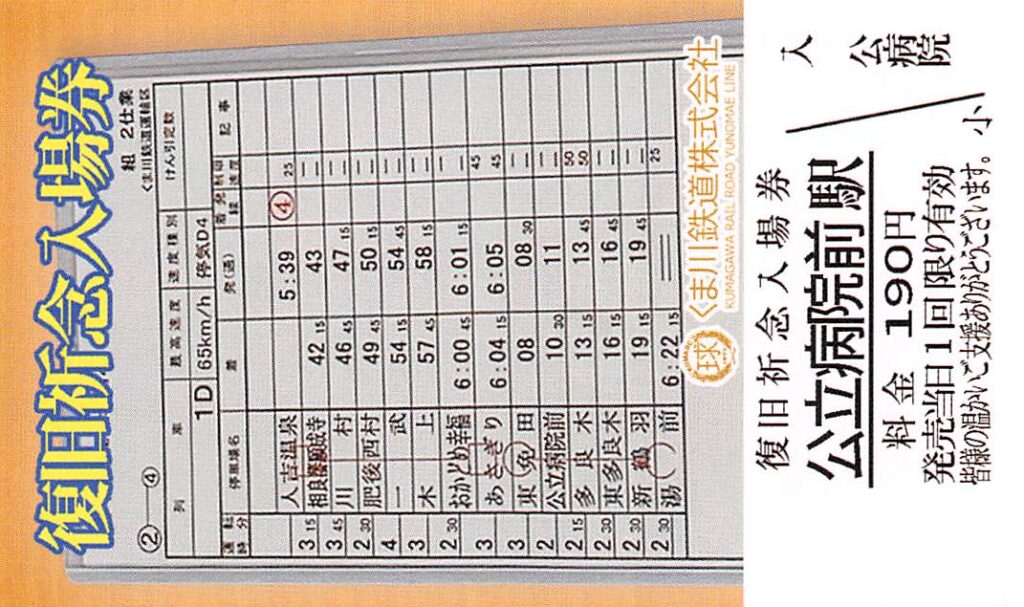 復旧祈念入場券
②―④
組 2仕業
くま川鉄道運輸区
列車 最高速度 速度種別 けん引定数
1D 65km/h 停気D4
運転時分 停車場名 着 発(通) 着発線 制限速度 記事
人吉温泉 5:39 ④ 25
3 15 相良藩願成寺 42 15 43
3 45 川村 46 45 47 15
2 30 肥後西村 49 45 50 15
4 一武 54 15 54 45
3 木上 57 45 58 15
2 30 おかどめ幸福 6:00 45 6:01 15
3 あさぎり 6:04 15 6:05 45 45
3 東免田 08 08 30
2 公立病院前 10 30 11
2 15 多良木 13 15 13 45 50 50
2 30 東多良木 16 15 16 45
2 30 新鶴羽 19 15 19 45
2 30 湯前 6:22 15 25
球 くま川鉄道株式会社
KUMAGAWA RAIL ROAD YUNOMAE LINE
復旧祈念入場券
公立病院前駅
料金 190円
発売当日1回限り有効
皆様の温かいご支援ありがとうございます。
入
公病院
小